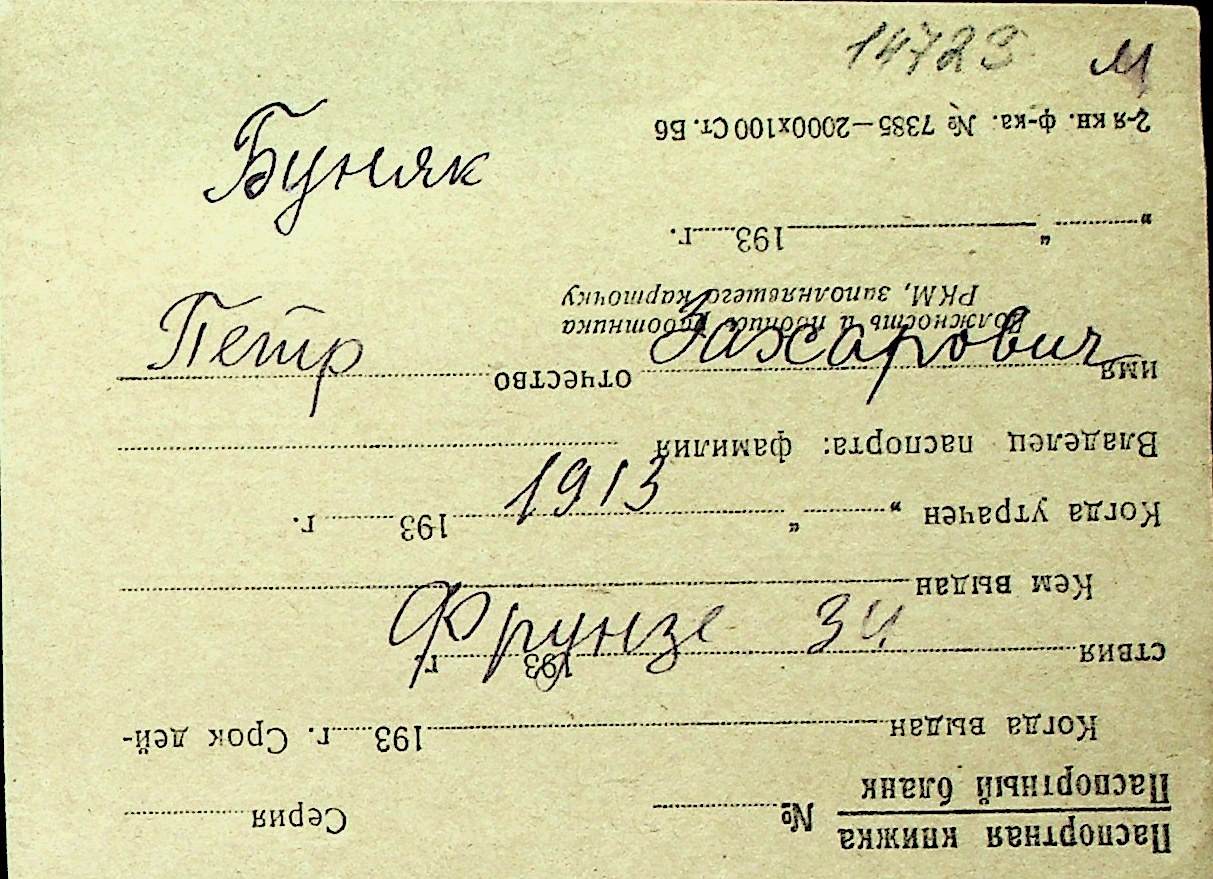 14723 м
Буняк
Петр Захарович
1913
Фрунзе 34
Паспортная книжка
Паспортный бланк
№ Серия
Когда выдан 193 г. Срок дей-
ствия 193 г.
Кем выдан
Когда утрачен „ “ 193 г.
Владелец паспорта: фамилия
имя отчество
Должность и подпись работника
РКМ, заполнявшего карточку
„ “ 193 г.
2-я кн. ф-ка. № 7385—2000х100 Ст. Б6